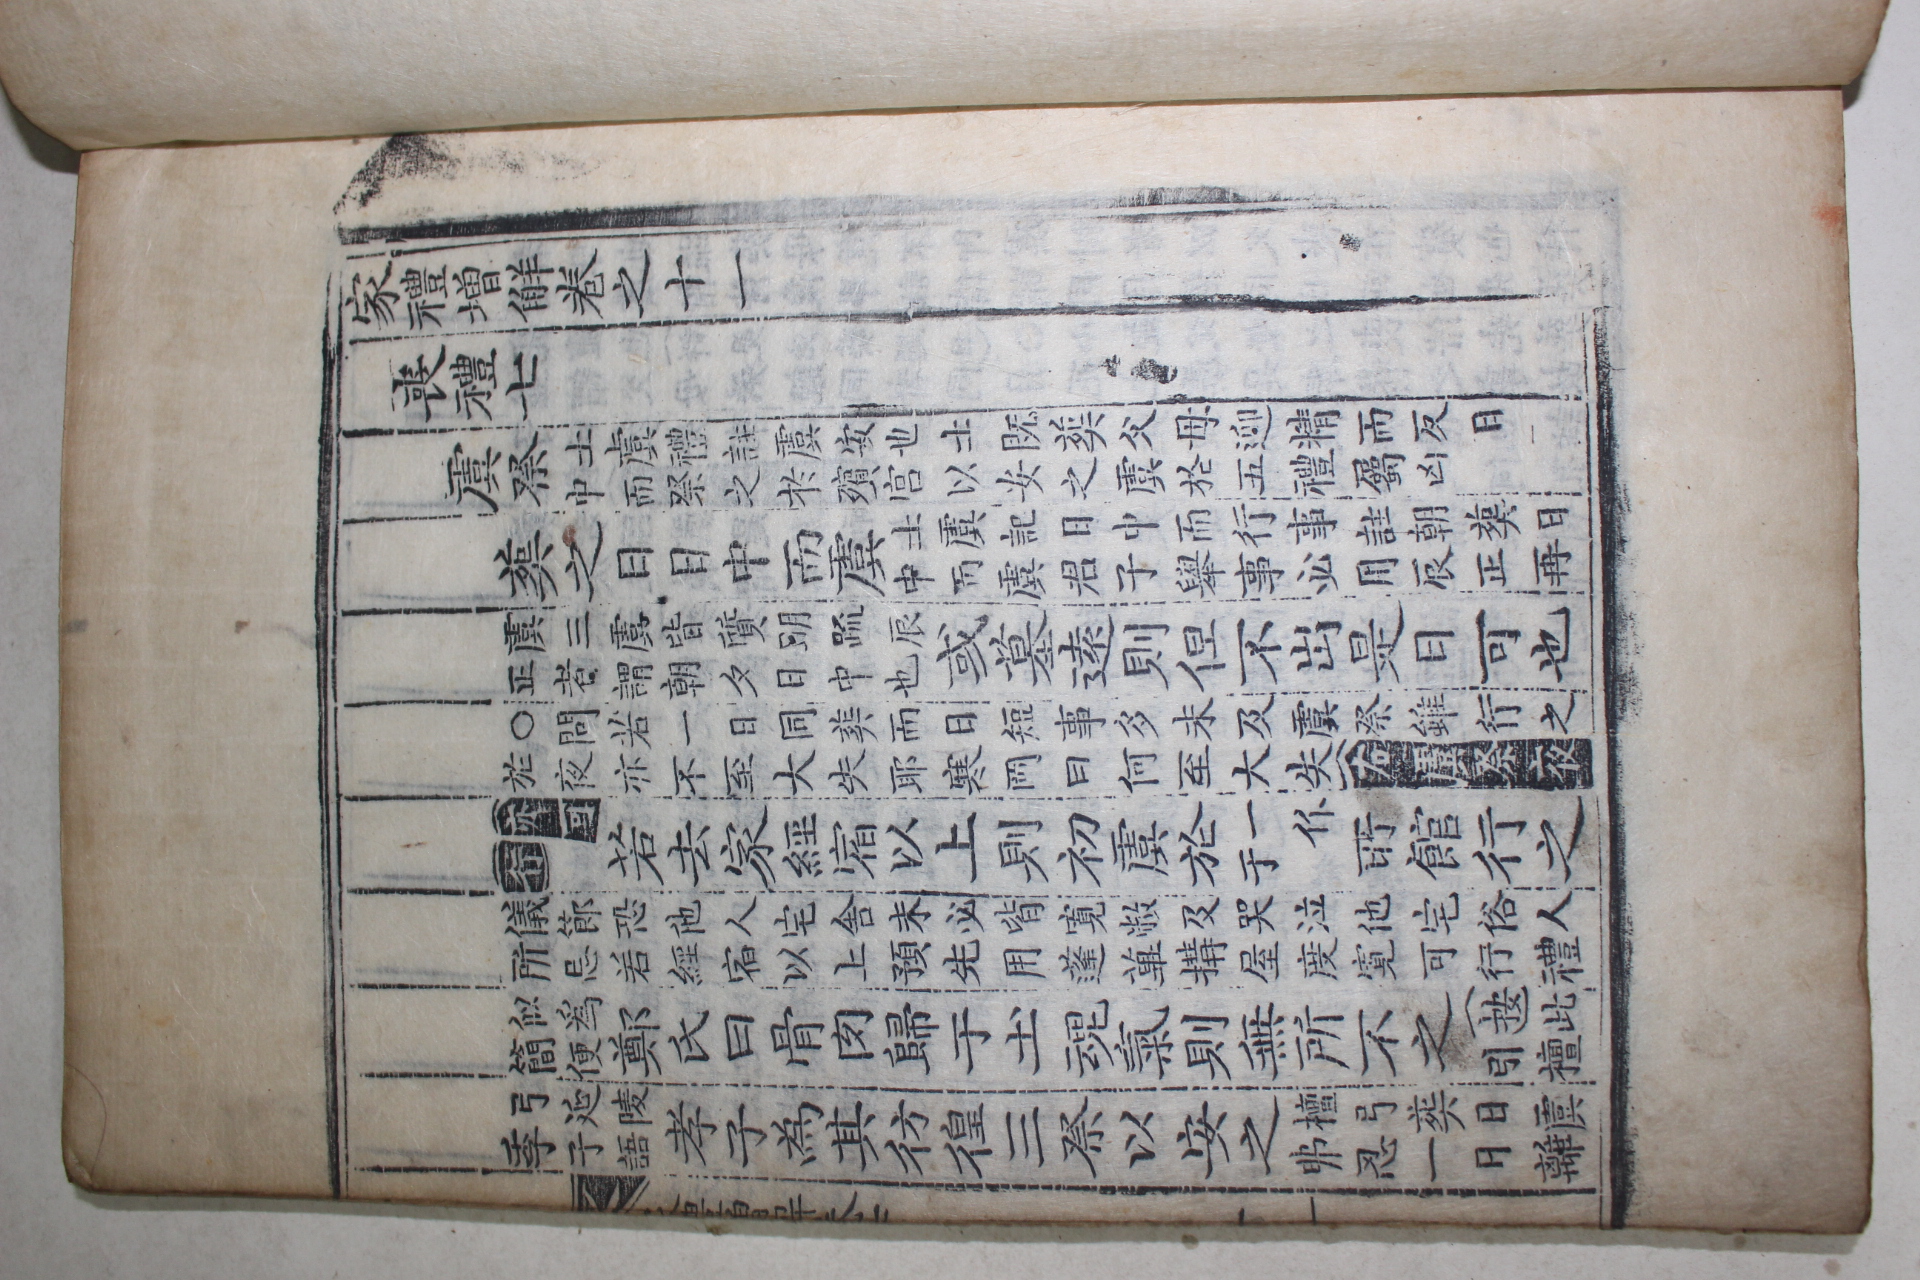 家禮增解卷之十一
喪禮七
虞祭
士虞禮註虞安也士既葬父母迎精而反日
中而祭之於殯宮以安之虞於五禮屬凶
葬之日日中而虞
士虞記日中而行事註朝葬日
中而虞君子舉事必用辰正再
虞三虞皆質明疏辰
正者謂朝夕日中也
或墓遠則但不出是日可也
○問若一日同葬而日短事多未及虞祭雖行之
於夜亦不至大失耶寒岡曰何至大失
右虞祭夜
亦可
行
若去家經宿以上則初虞於
一作
于
所館行之
儀節恐他人宅舍未必皆寬敞及哭泣他宅俗人
所忌若經宿以上預先用蓬蓽搆屋度寬可行禮
似爲
簡便
鄭氏曰骨肉歸于土魂氣則無所不之
按此
引檀
弓延陵
季子語
孝子為其彷徨三祭以安之
檀弓葬日虞
弗忍一日離